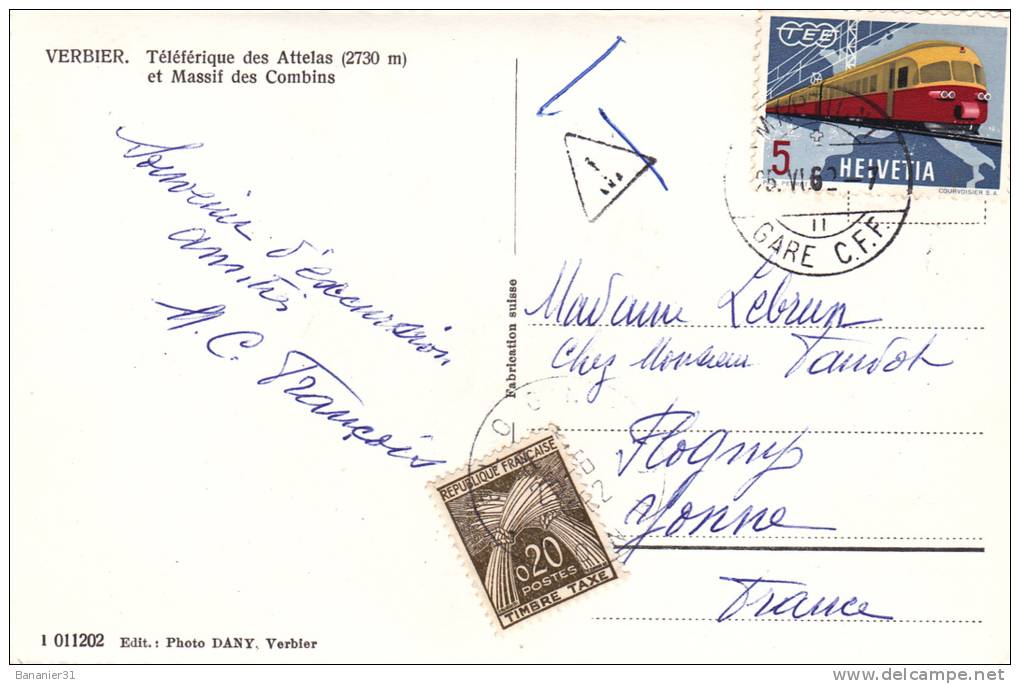 VERBIER. Téléférique des Attelas (2730 m)
et Massif des Combins
Souvenir d'excursion
amitiés
M. C. François
Fabrication suisse
TEE
5
HELVETIA
COURVOISIER S.A.
VI.62-7
II
GARE C.F.F.
T
Madame Lebrun
Chez Monsieur
Flogny
Yonne
France
REPUBLIQUE FRANÇAISE
0,20
POSTES
TIMBRE TAXE
1 011202 Edit.: Photo DANY, Verbier
Bananier31
delcampe.net